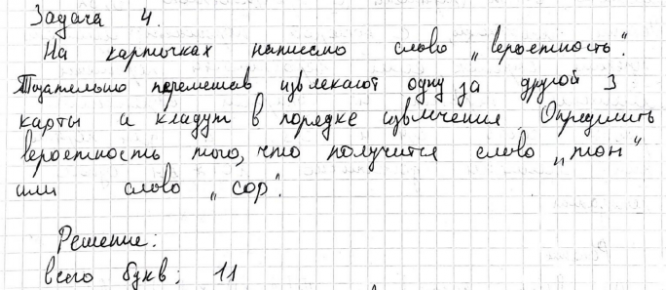 Задача 4.
На карточках написано слово „вероятность".
Тщательно перемешав извлекают одну за другой 3
карты и кладут в порядке извлечения. Определить
вероятность того, что получится слово „тон"
или слово „сор".
Решение:
всего букв: 11